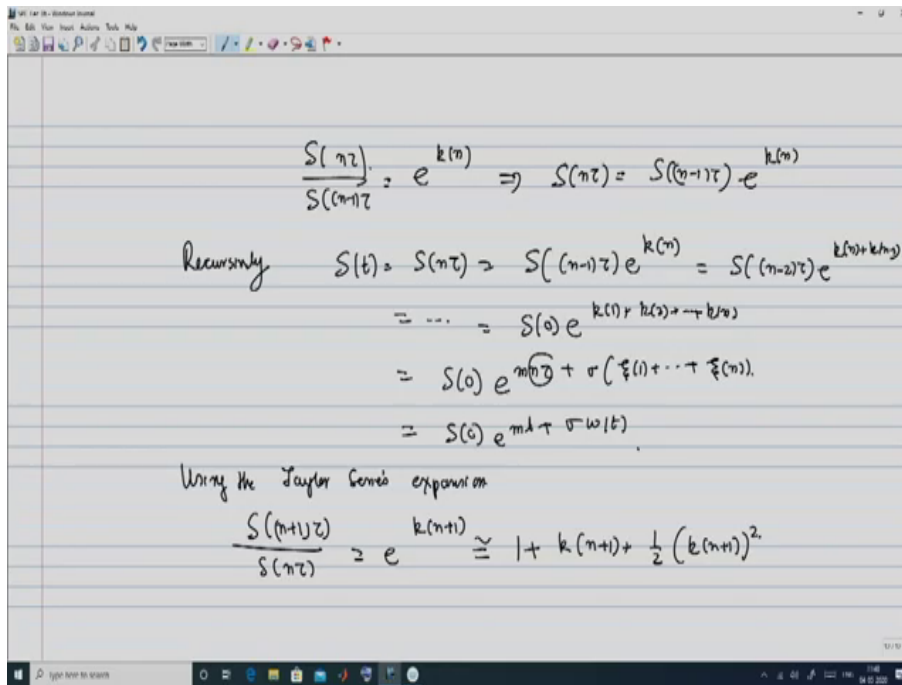 File Edit View Insert Actions Tools Help
Page Width
S(nτ) / S((n-1)τ = e^{k(n)} ⇒ S(nτ) = S((n-1)τ) e^{k(n)}
Recursively S(t) = S(nτ) = S((n-1)τ) e^{k(n)} = S((n-2)τ) e^{k(n)+k(n-1)}
= ... = S(0) e^{k(1)+k(2)+...+k(n)}
= S(0) e^{mnτ + σ(ξ(1)+...+ξ(n))}
= S(0) e^{mt + σw(t)}
Using the Taylor Series expansion
S((n+1)τ) / S(nτ) = e^{k(n+1)} ≅ 1 + k(n+1) + 1/2 (k(n+1))^2
Type here to search